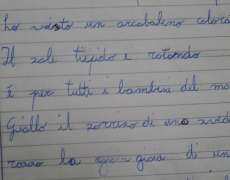 Ho visto un arcobaleno colora
Il sole tiepido e rotondo
è per tutti i bambini del mo
Giallo il sorriso di uno
rosso la gioia di un